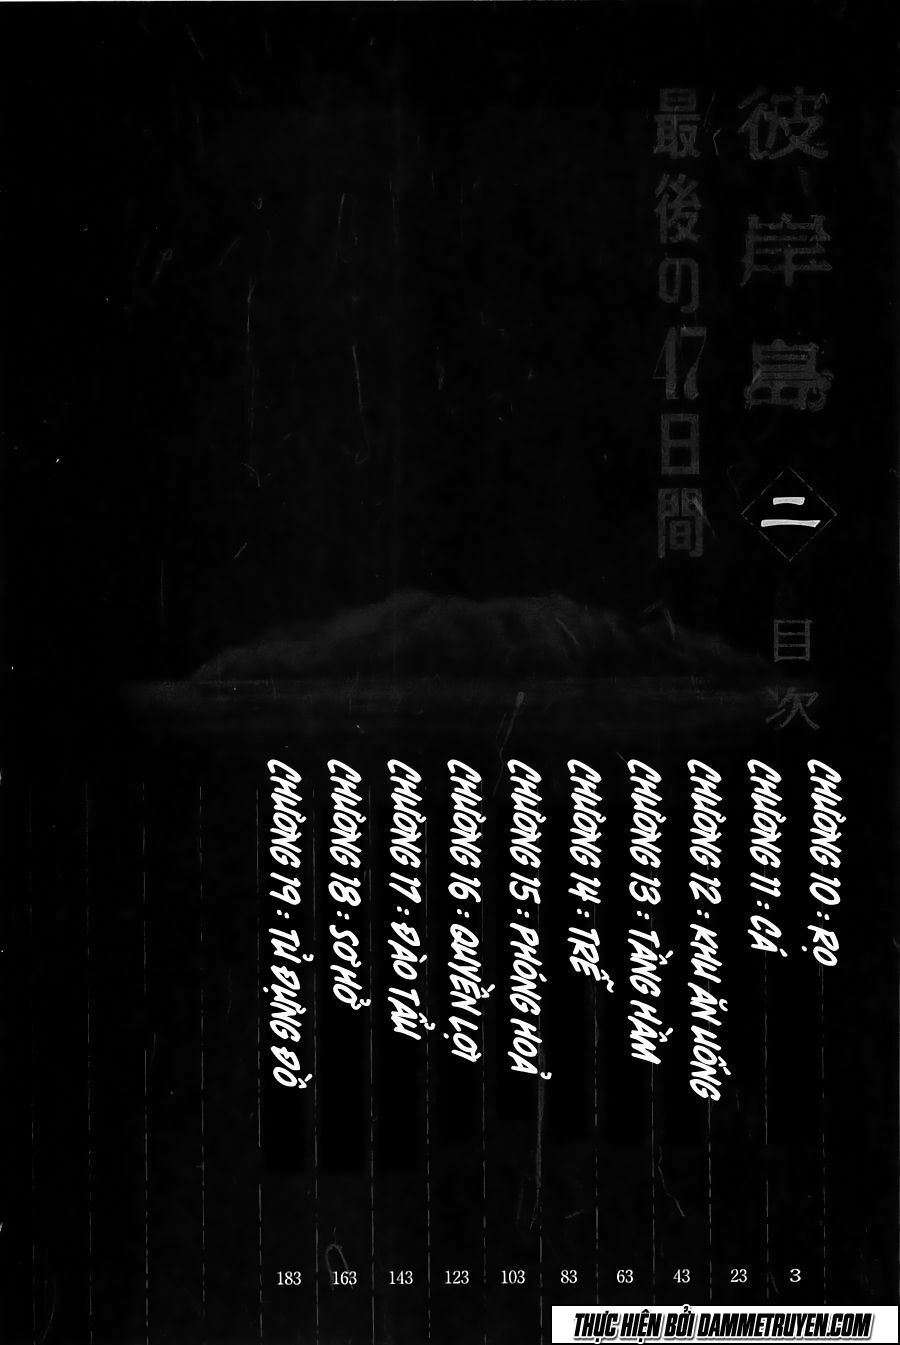 彼岸島
最後の47日間
二
目次
CHƯƠNG 10 : RỌ
CHƯƠNG 11 : CÁ
CHƯƠNG 12 : KHU ĂN UỐNG
CHƯƠNG 13 : TẦNG HẦM
CHƯƠNG 14 : TRỄ
CHƯƠNG 15 : PHÓNG HOẢ
CHƯƠNG 16 : QUYỀN LỢI
CHƯƠNG 17 : ĐÀO TẨU
CHƯƠNG 18 : SƠ HỞ
CHƯƠNG 19 : TỦ ĐỰNG ĐỒ
3
23
43
63
83
103
123
143
163
183
THỰC HIỆN BỞI DAMMETRUYEN.COM